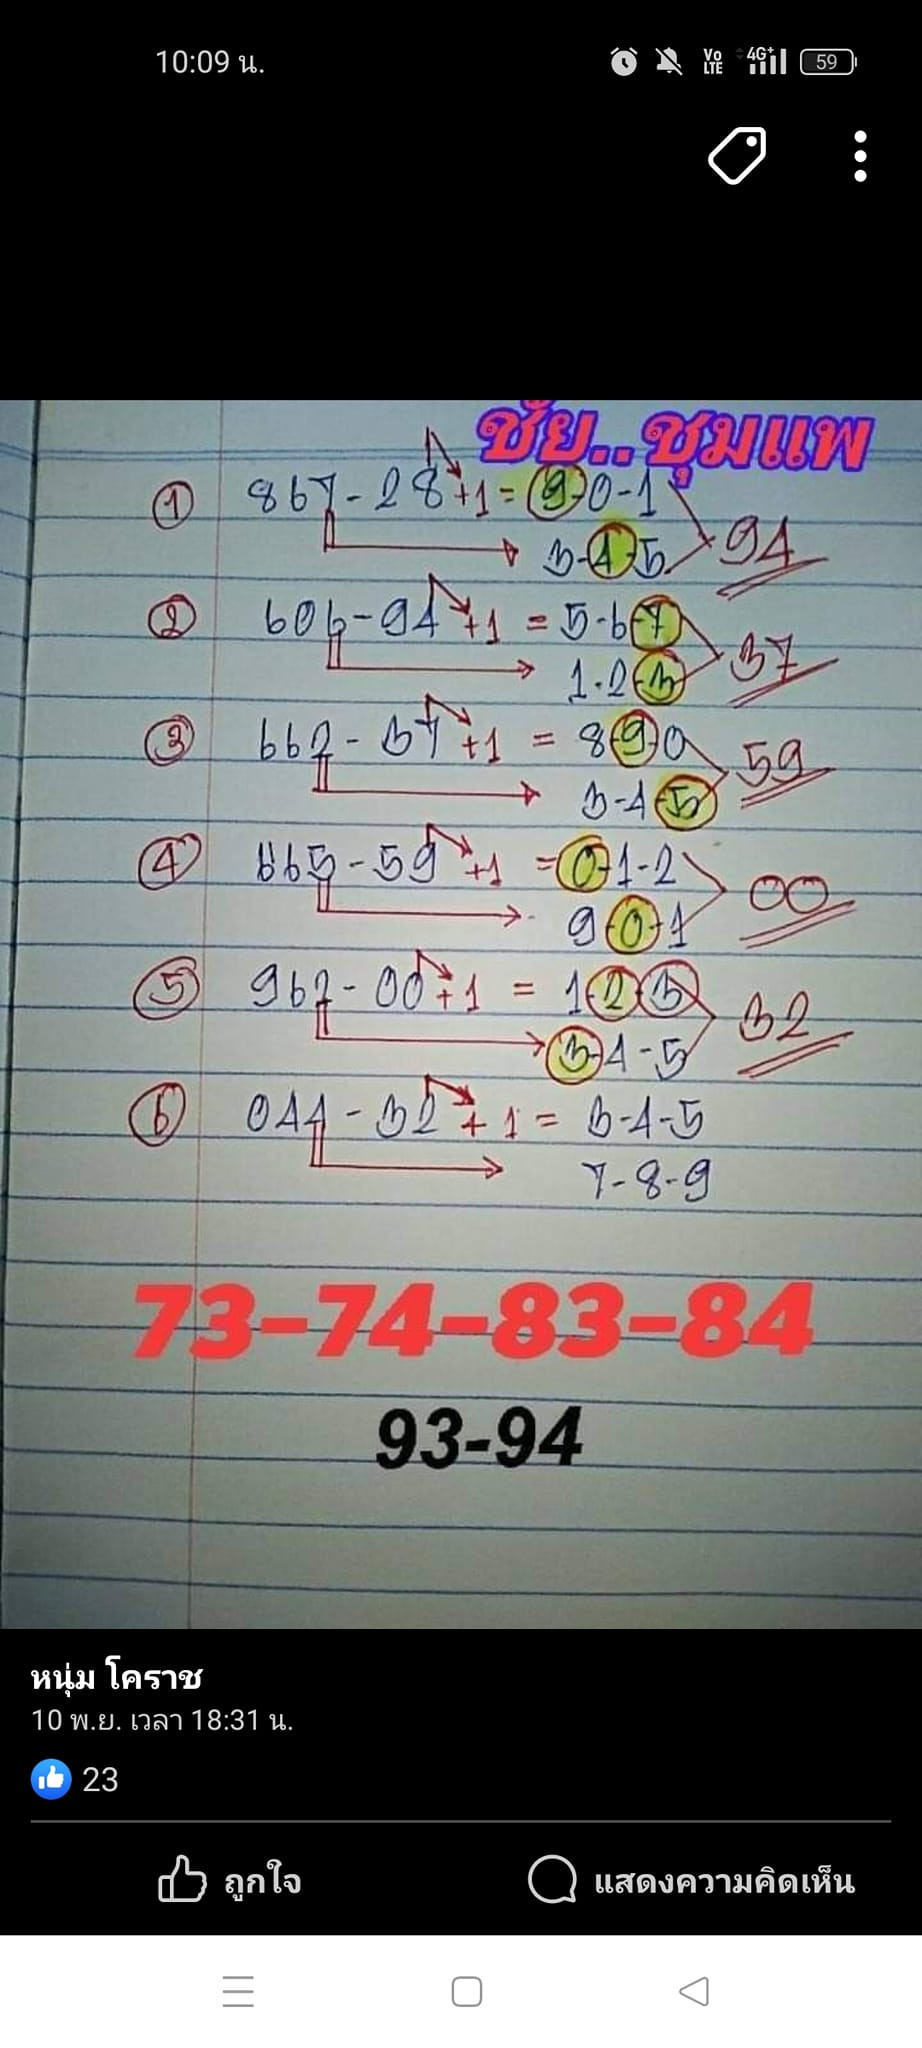 10:09 น.
Vo LTE 4G+ 59
ชัย..ชุมแพ
① 867-28+1=9-0-1
3-4-5 94
② 606-94+1=5-6-7
1-2-3 37
③ 662-37+1=8-9-0
3-4-5 59
④ 865-59+1=0-1-2
9-0-1 00
⑤ 962-00+1=1-2-3
3-4-5 32
⑥ 044-32+1=3-4-5
7-8-9
73-74-83-84
93-94
หนุ่ม โคราช
10 พ.ย. เวลา 18:31 น.
23
ถูกใจ แสดงความคิดเห็น